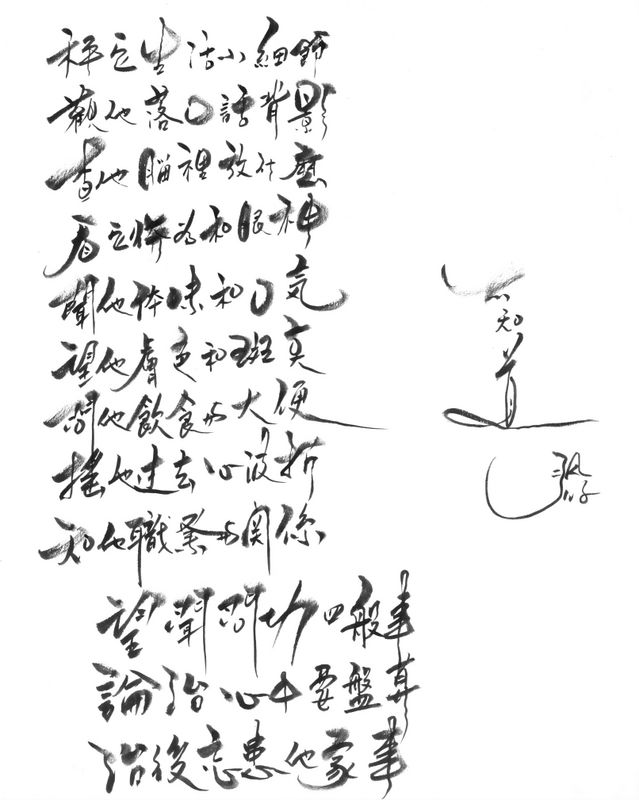 釋它生活小細節
觀他落口話背影
查他腦裡放什麼
看它行為和眼神
聞他体味和口気
望他膚色和斑莫
問他飲食与大便
搖他过去心波折
知他職業与関係
望聞問切四般事
論治心中要盤算
治後忘患他家事
不知道